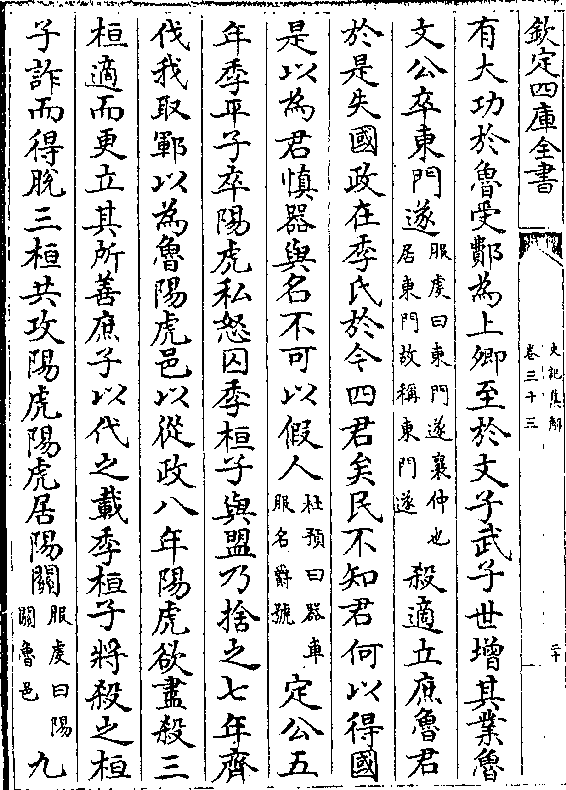 欽定四庫全書
史記集解
卷三十三
二十
有大功於魯受鄪為上卿至於文子武子世增其業魯
文公卒東門遂服虔曰東門遂襄仲也居東門故稱東門遂殺適立庶魯君
於是失國政在季氏於今四君矣民不知君何以得國
是以為君慎器與名不可以假人杜預曰器車服名爵號定公五
年季平子卒陽虎私怒囚季桓子與盟乃捨之七年齊
伐我取鄆以為魯陽虎邑以從政八年陽虎欲盡殺三
桓適而更立其所善庶子以代之載季桓子將殺之桓
子詐而得脫三桓共攻陽虎陽虎居陽關服虔曰陽關魯邑九